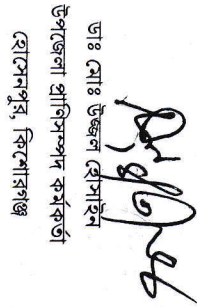 ডাঃ মোঃ উজ্জল হোসাইন
উপজেলা প্রাণিসম্পদ কর্মকর্তা
হোসেনপুর, কিশোরগঞ্জ